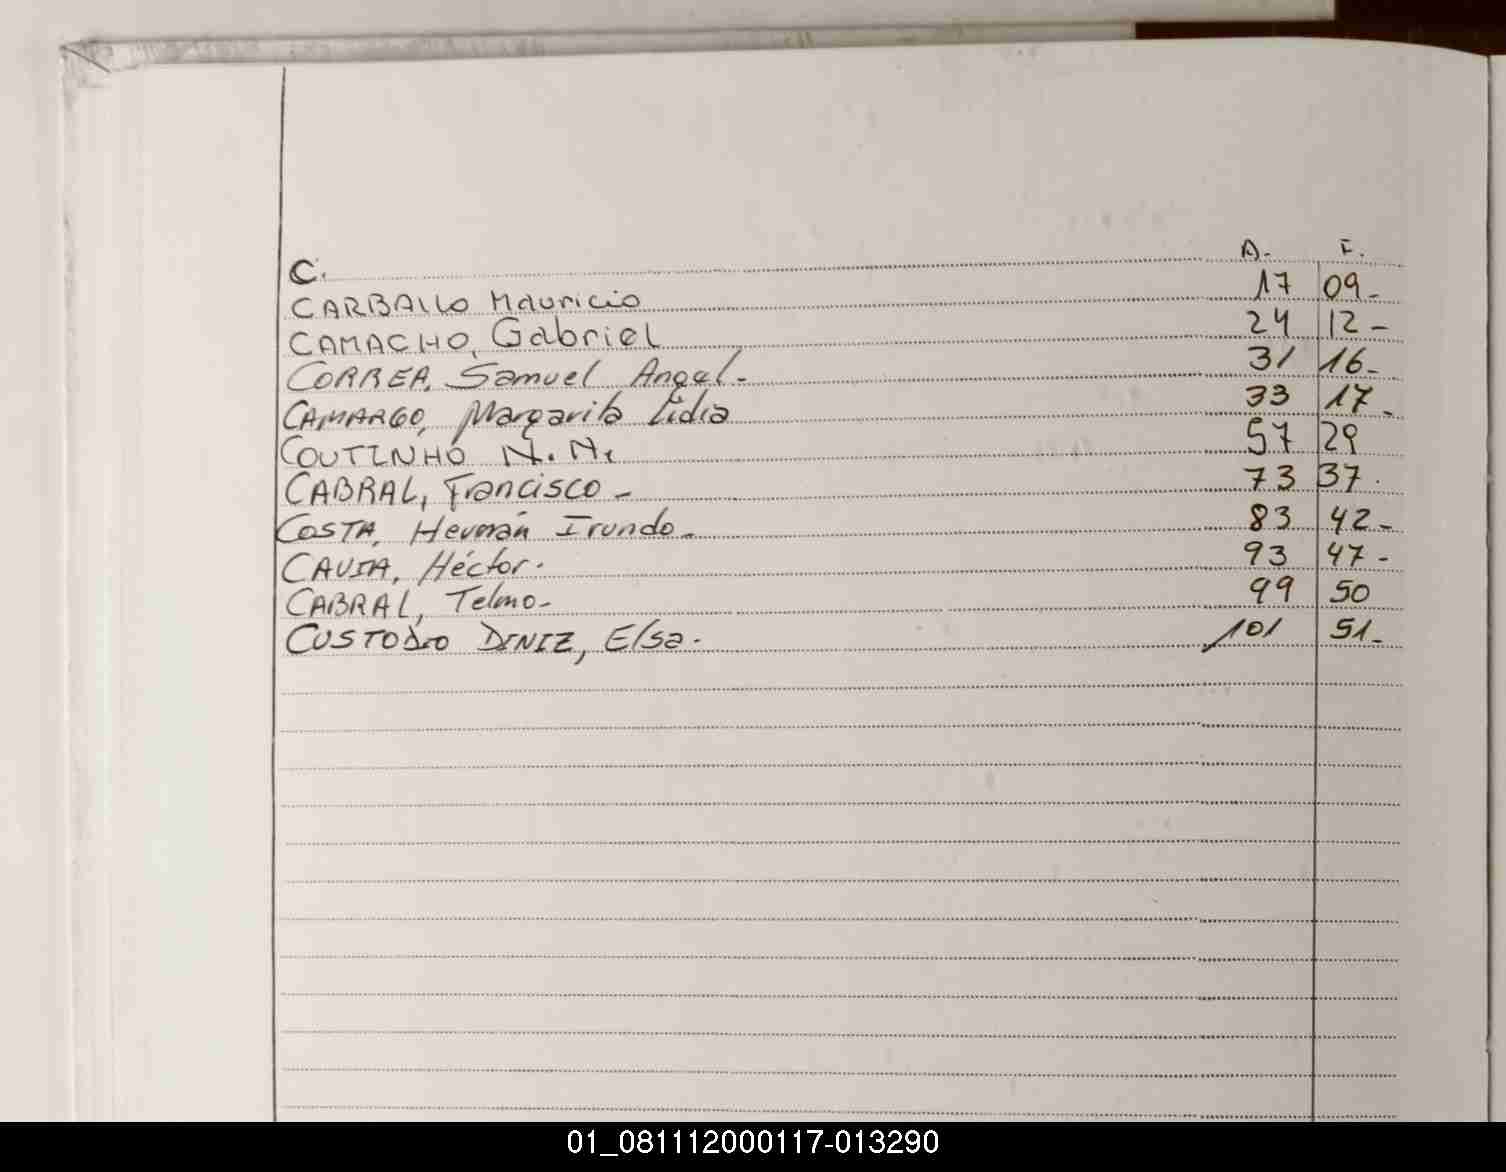 C. A. F.
CARBALLO Mauricio 17 09-
CAMACHO, Gabriel 24 12-
CORREA, Samuel Angel- 31 16-
CAMARGO, Margarita Lidia 33 17-
COUTINHO N.N. 57 29
CABRAL, Francisco- 73 37.
COSTA, Hernán Irundo- 83 42-
CAUIA, Héctor. 93 47-
CABRAL, Telmo- 99 50
CUSTODIO DINIZ, Elsa. 101 51-
01_081112000117-013290